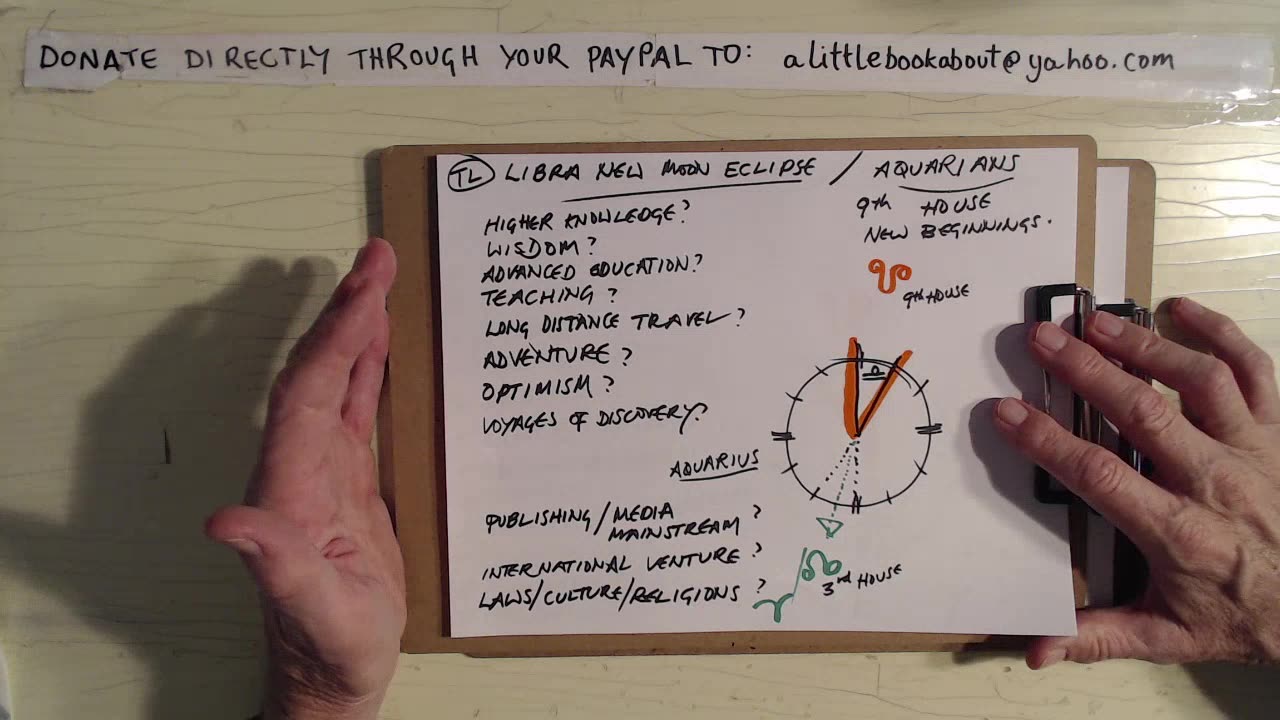 DONATE DIRECTLY THROUGH YOUR PAYPAL TO: alittlebookabout@yahoo.com
TL LIBRA NEW MOON ECLIPSE / AQUARIANS
9th HOUSE
NEW BEGINNINGS.
HIGHER KNOWLEDGE?
WISDOM?
ADVANCED EDUCATION?
TEACHING?
LONG DISTANCE TRAVEL?
ADVENTURE?
OPTIMISM?
VOYAGES OF DISCOVERY?
☋
9th HOUSE
♎
AQUARIUS
PUBLISHING/MEDIA ?
MAINSTREAM
INTERNATIONAL VENTURE?
LAWS/CULTURE/RELIGIONS?
♈/☊
3rd HOUSE